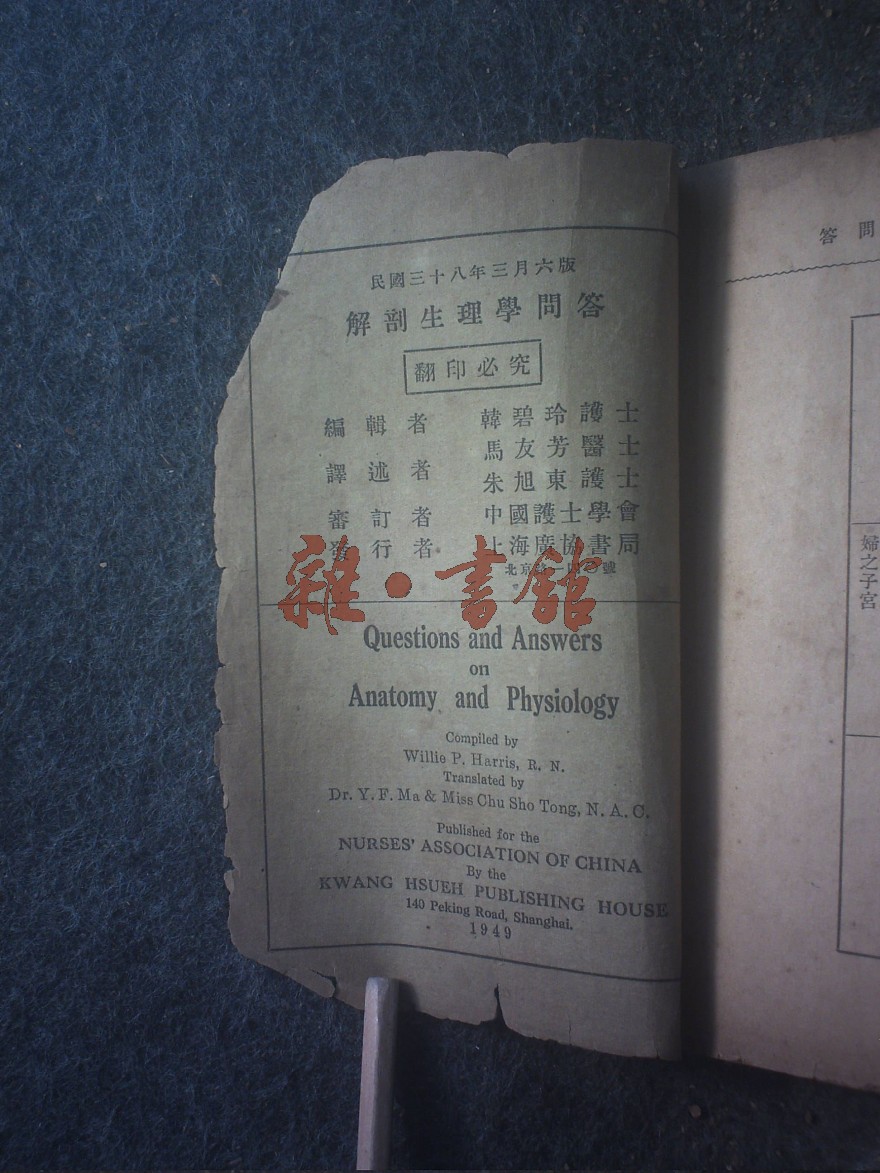 民國三十八年三月六版
解剖生理學問答
翻印必究
編輯者 韓碧玲護士
馬友芳醫士
譯述者
朱旭東護士
審訂者 中國護士學會
發行者 上海廣協書局
北京路一四〇號
雜·書館
Questions and Answers
on
Anatomy and Physiology
Compiled by
Willie P. Harris, R. N.
Translated by
Dr. Y. F. Ma & Miss Chu Sho Tong, N. A. C.
Published for the
NURSES' ASSOCIATION OF CHINA
By the
KWANG HSUEH PUBLISHING HOUSE
140 Peking Road, Shanghai.
1949
答問
婦之子宮